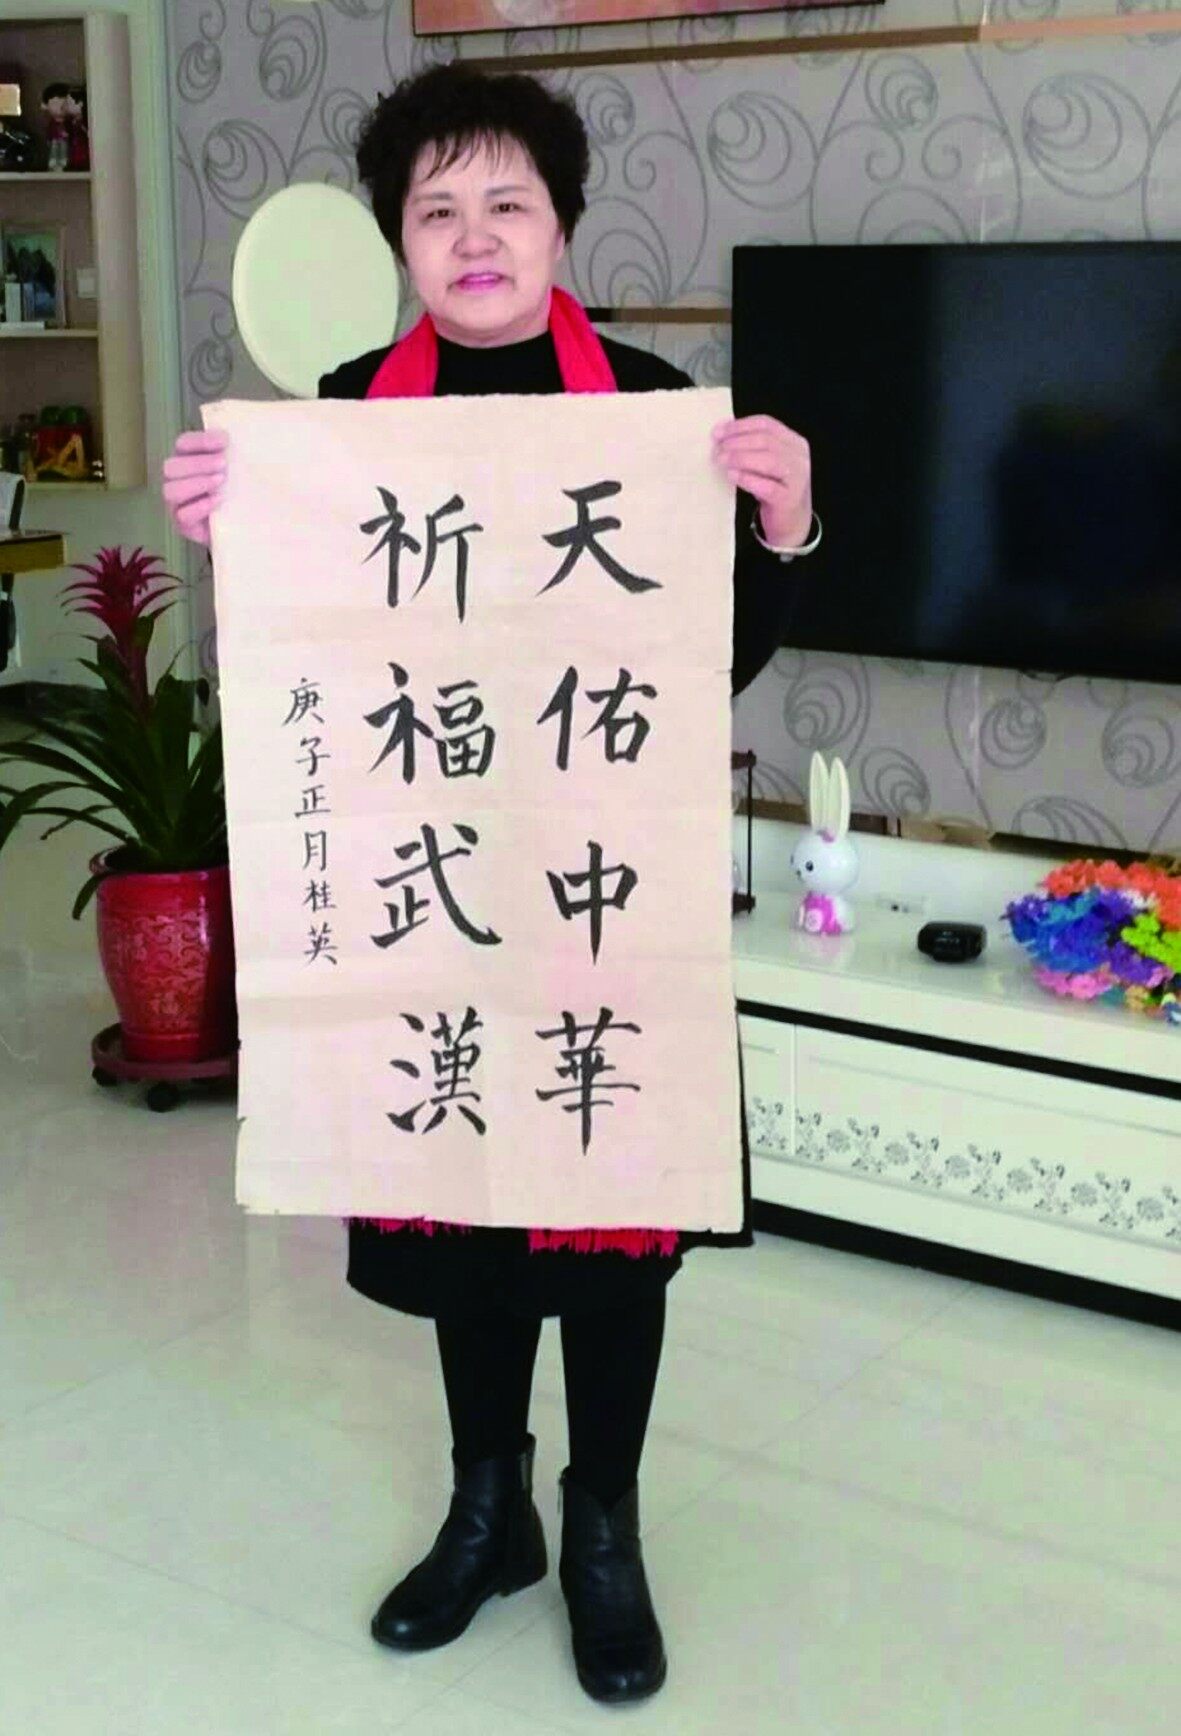 天佑中華
祈福武漢
庚子正月桂英
福